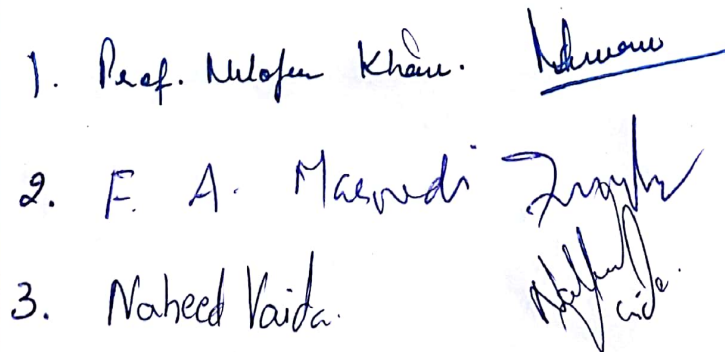 1. Prof. Nilofer Khan.
2. F. A. Masoodi
3. Naheed Vaida.